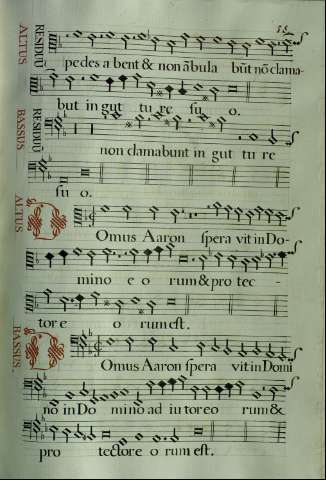 ALTUS RESIDUŨ
pedes a bent & non ãbula bũt nõ clama-
but in gut tu re su o.
BASSUS RESIDUŨ
non clamabunt in gut tu re
su o.
ALTUS
Domus Aaron spera vit in Do-
mino e o rum & pro tec -
tor e o rum est.
BASSUS.
Domus Aaron spera vit in Domi
no in Do mino ad iu tor eo rum &
pro tector e o rum est.